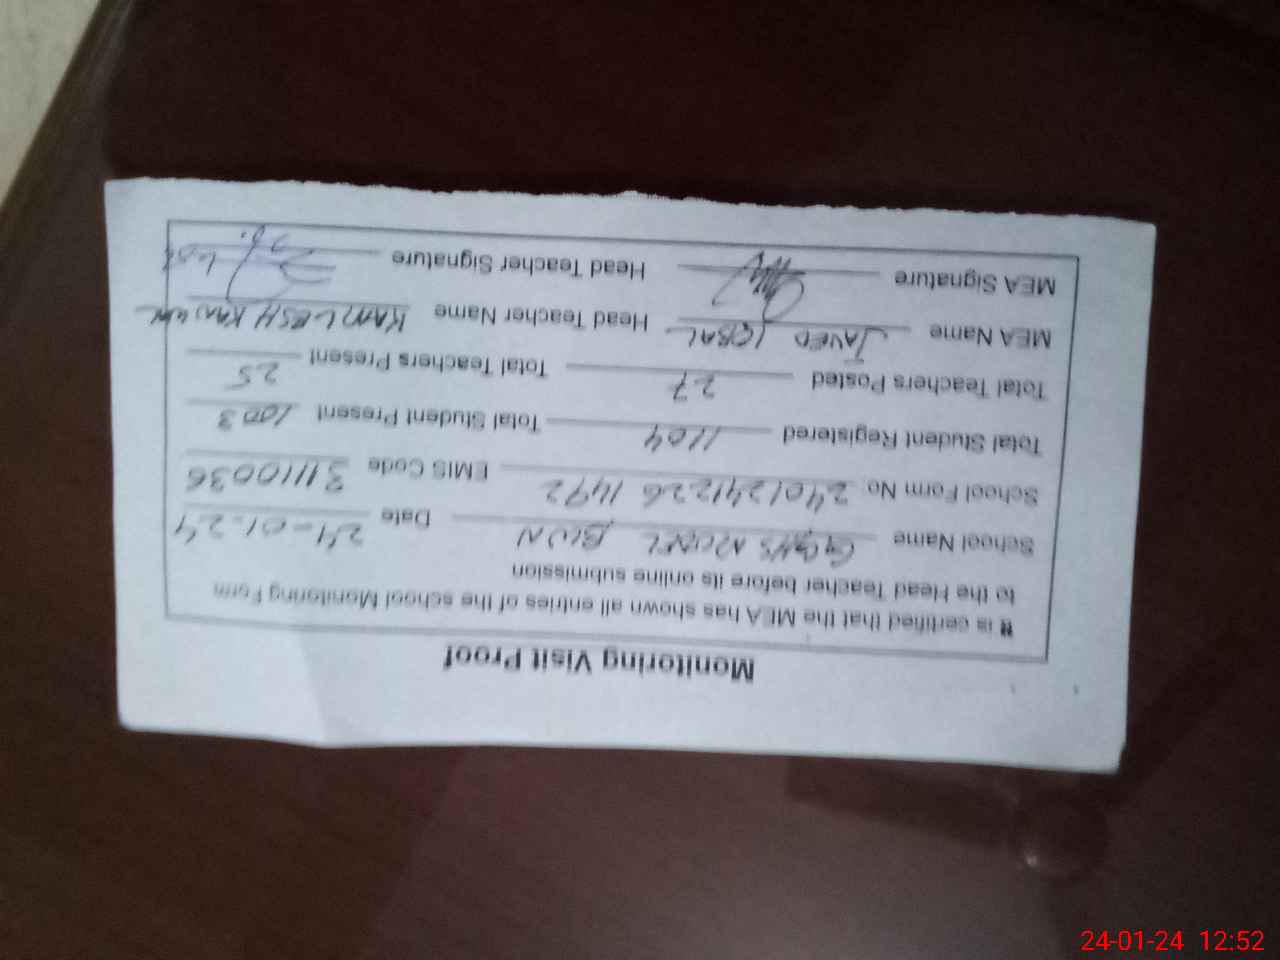 Monitoring Visit Proof
It is certified that the MEA has shown all entries of the school Monitoring Form
to the Head Teacher before its online submission
School Name GGHS MODEL BWN Date 24-01-24
School Form No. 2401241226 1492 EMIS Code 31110036
Total Student Registered 1104 Total Student Present 1003
Total Teachers Posted 27 Total Teachers Present 25
MEA Name JAVED IQBAL Head Teacher Name KAMLESH
MEA Signature Head Teacher Signature
24-01-24 12:52